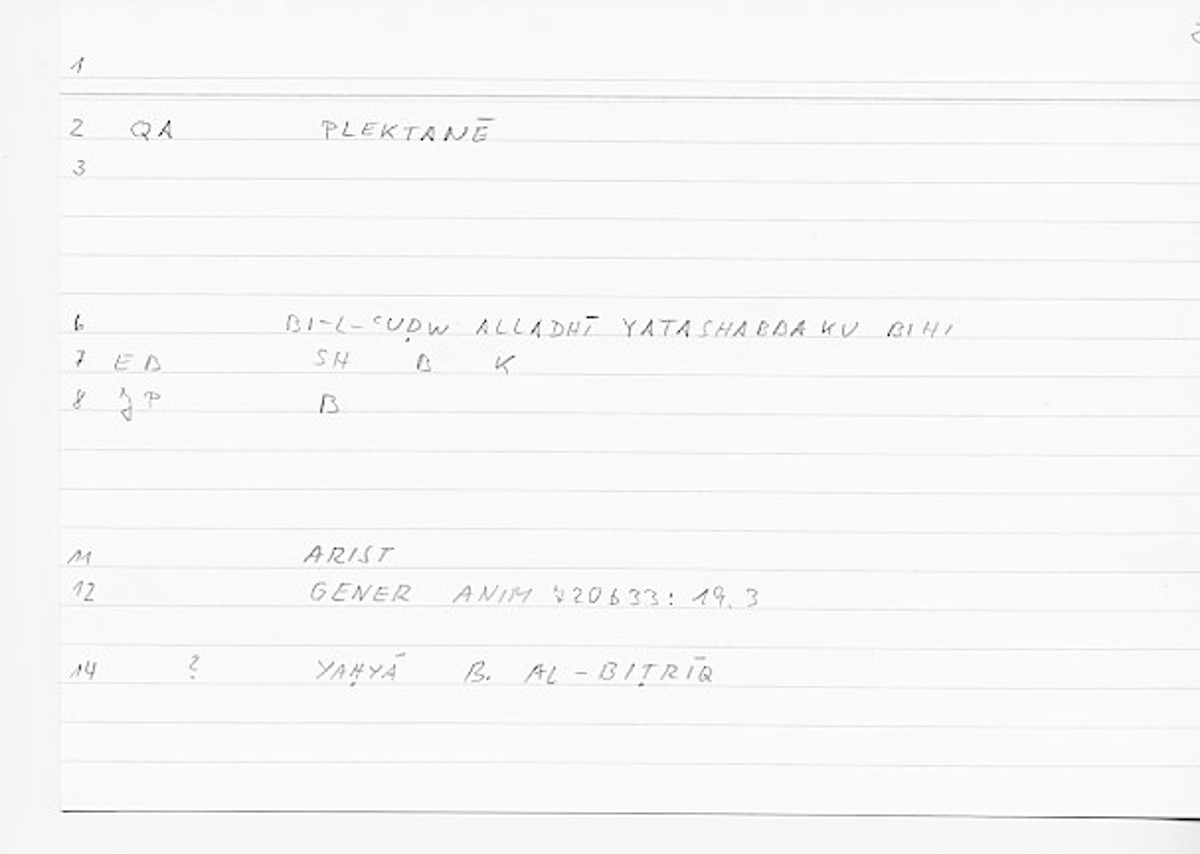 1
2 QA PLEKTANĒ
3
6 BI-L-ʿUḌW ALLADHĪ YATASHABBAKU BIHI
7 EB SH B K
8 P B
11 ARIST
12 GENER ANIM 720b33: 19.3
14 ? YAḤYĀ B. AL-BIṬRĪQ